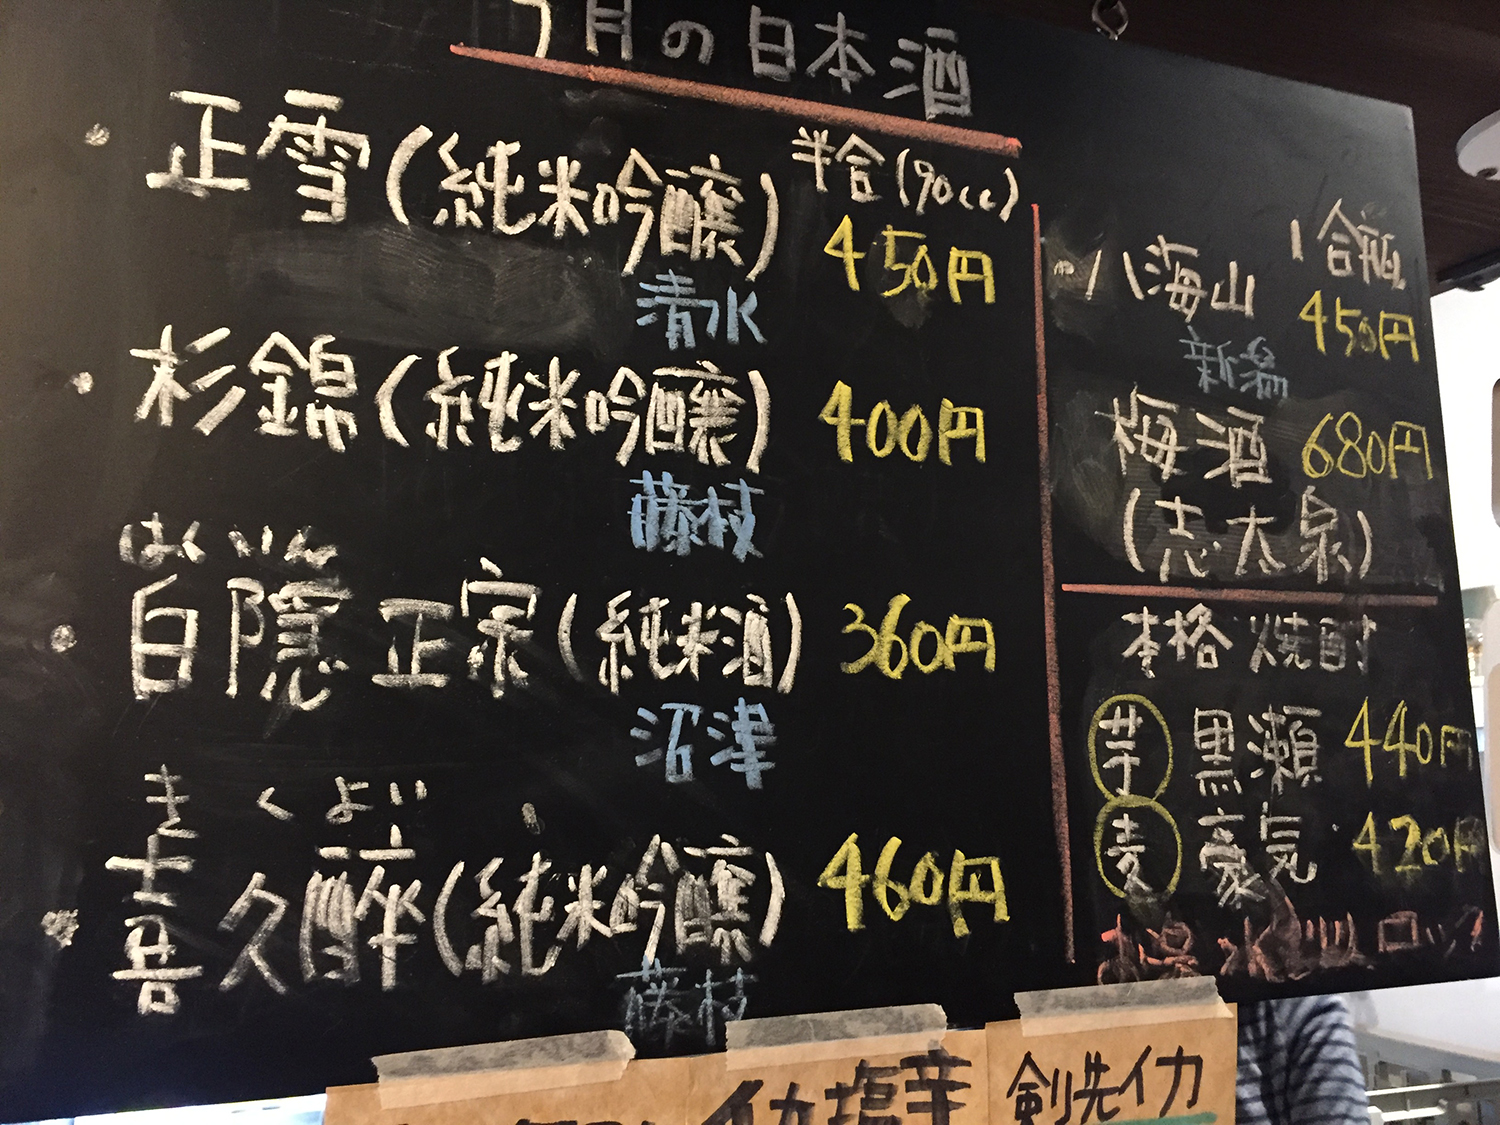 7月の日本酒
半合(90cc)
・正雪(純米吟醸) 450円
清水
・杉錦(純米吟醸) 400円
藤枝
はくいん
・白隠正宗(純米酒) 360円
沼津
きくよい
・喜久酔(純米吟醸) 460円
藤枝
1合瓶
・八海山 450円
新潟
梅酒 680円
(志太泉)
本格焼酎
芋 黒瀬 440円
麦 豪気 420円
お湯 水割 ロック
イカ塩辛
剣先イカ